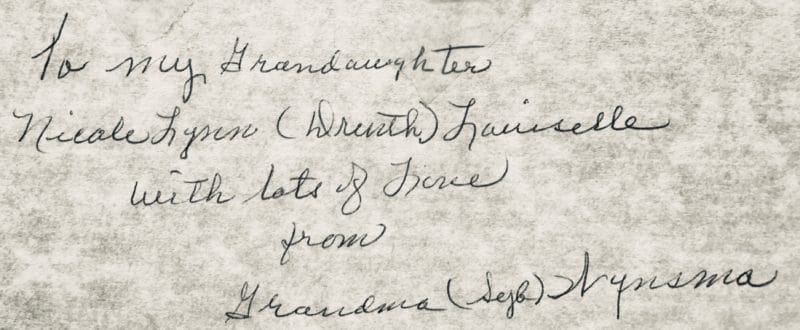 To my Grandaughter
Nicole Lynn (Drenth) Loiselle
with lots of Love
from
Grandma (Seyb) Wynsma